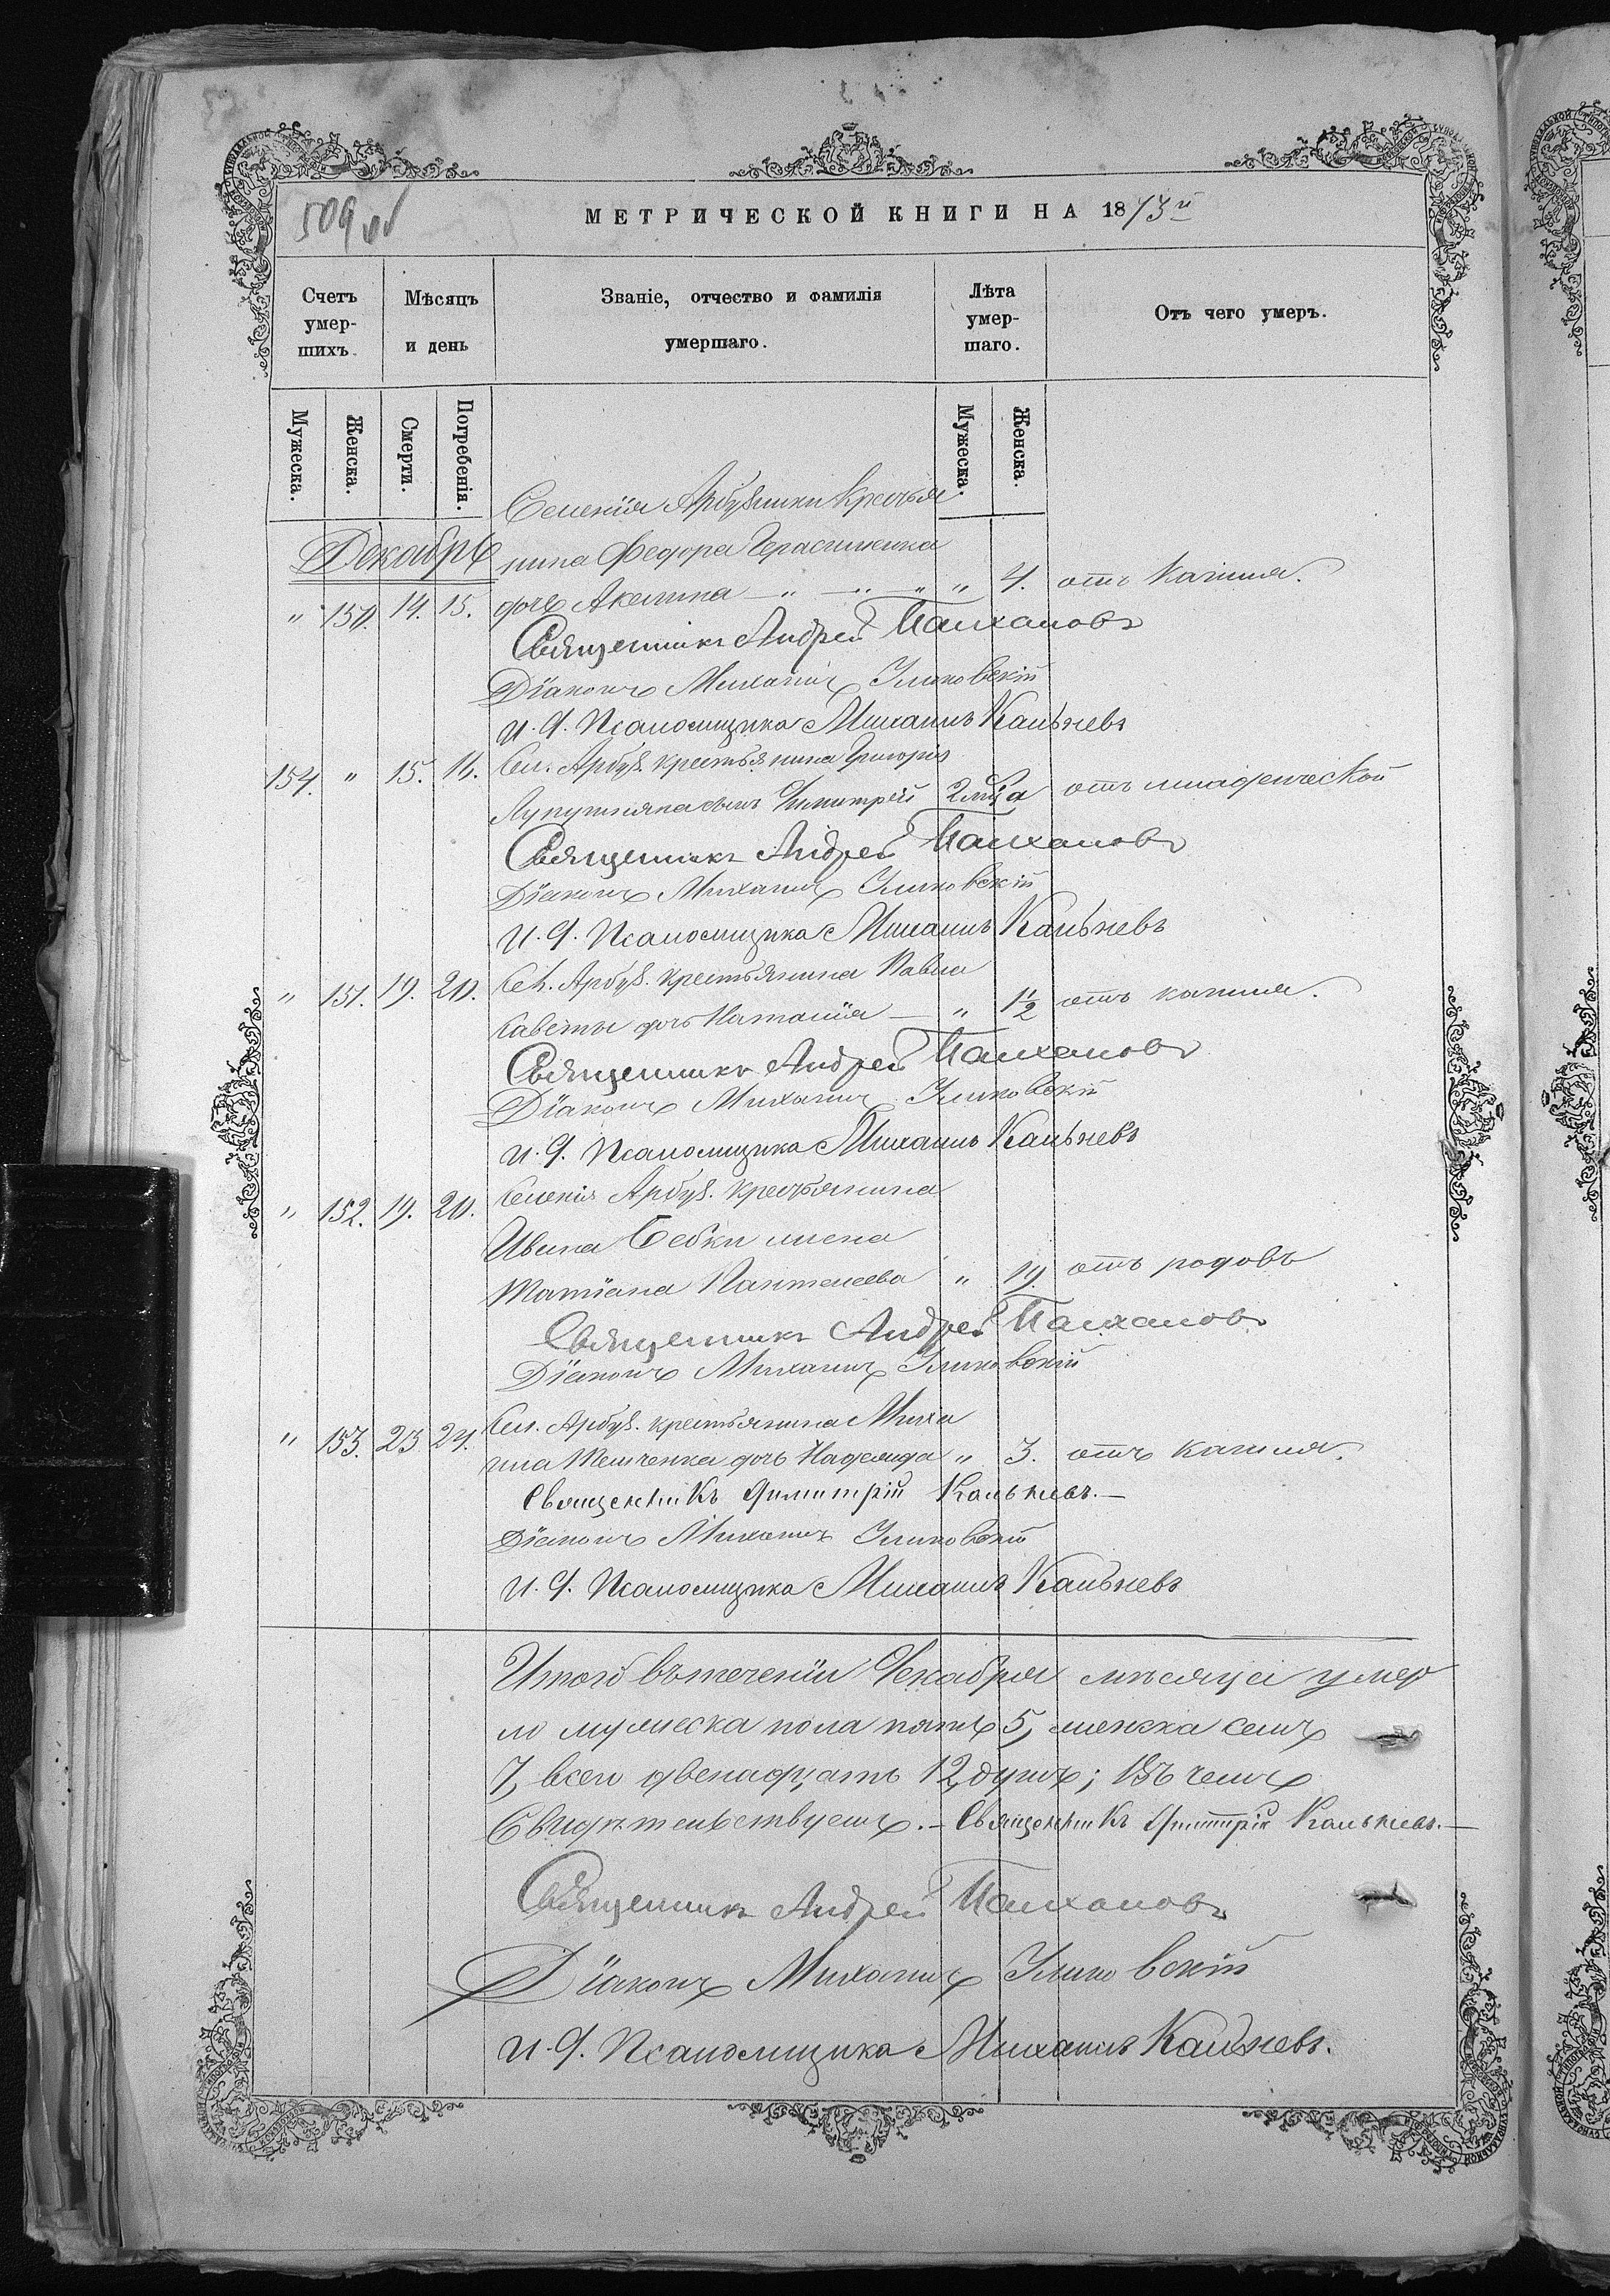 509 об
МЕТРИЧЕСКОЙ КНИГИ НА 1873й
Счетъ умер-шихъ.
Мѣсяцъ и день
Званіе, отчество и фамилія умершаго.
Лѣта умер-шаго.
Отъ чего умеръ.
Мужеска. Женска. Смерти. Погребенія. Мужеска. Женска.
Селенія Арбузинки крестья
Декабрь нина Федора Герасименка
" 150. 14. 15. дочь Акилина " " " " 4. отъ кашля.
Священникъ Андрей
Діаконъ Михаилъ
И. д. Псаломщика Михаилъ Кальневъ
154. " 15. 16. Сел. Арбуз. крестьянина Григорія
сынъ Димитрій 2 мца отъ младенческой
Священникъ Андрей
Діаконъ Михаилъ
И. д. Псаломщика Михаилъ Кальневъ
" 151. 19. 20. Сел. Арбуз. крестьянина Павла
дочь Наталія " 1½ отъ кашля.
Священникъ Андрей
Діаконъ Михаилъ
И. д. Псаломщика Михаилъ Кальневъ
" 152. 19. 20. Селенія Арбуз. крестьянина
Ивана жена
Татіана Пантелеева " 19. отъ родовъ
Священникъ Андрей
Діаконъ Михаилъ
" 153. 23 24. Сел. Арбуз. крестьянина Миха
ила дочь Надежда " 3. отъ кашля.
Священникъ Димитрій Кальневъ.—
Діаконъ Михаилъ
И. д. Псаломщика Михаилъ Кальневъ
Итого въ теченіи Декабря мѣсяца умер
ло мужеска пола пять 5, женска семь
7, всего двенадцать 12, душъ; въ чемъ
Свидѣтельствуемъ.— Священникъ Димитрій Кальневъ.—
Священникъ Андрей
Діаконъ Михаилъ
И. д. Псаломщика Михаилъ Кальневъ.